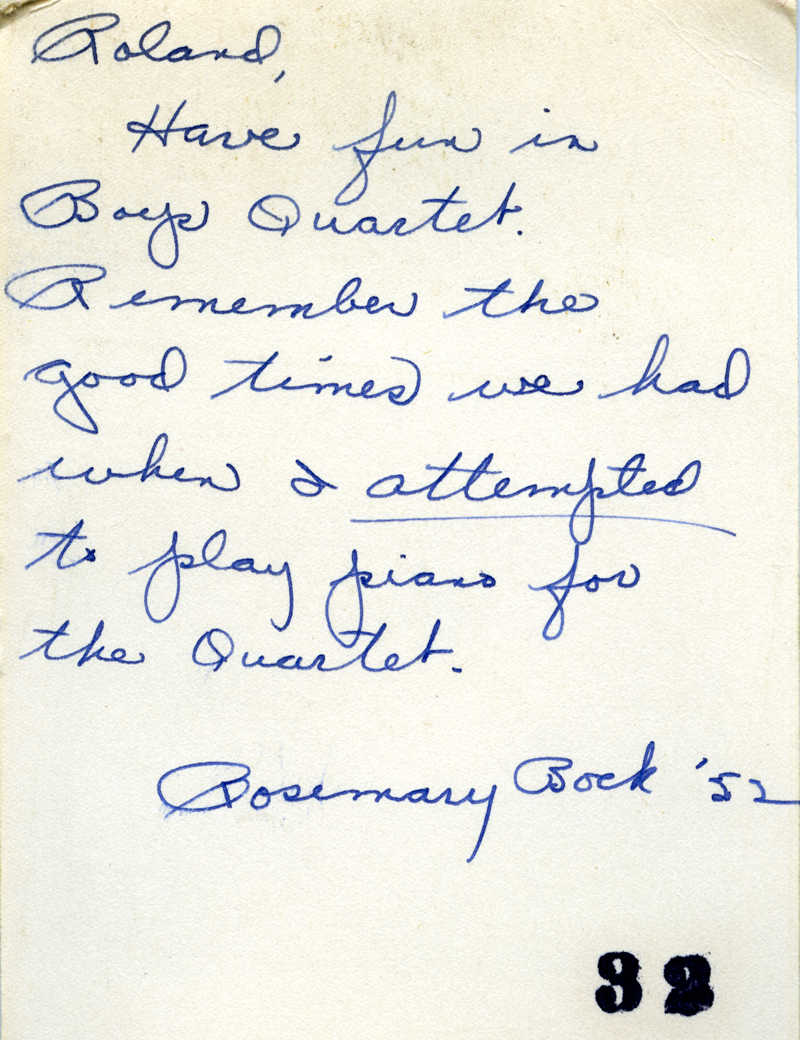 Roland,
Have fun in
Boys Quartet.
Remember the
good times we had
when I attempted
to play piano for
the Quartet.
Rosemary Bock '52
32